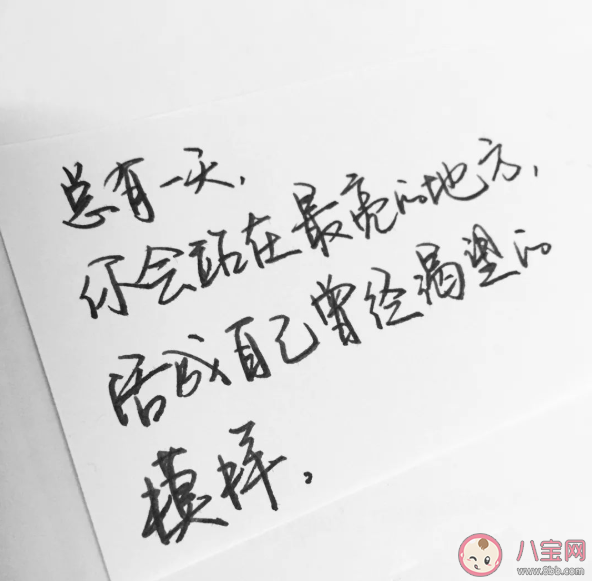 总有一天，
你会站在最亮的地方，
活成自己曾经渴望的
模样。
八宝网
www.8bb.com